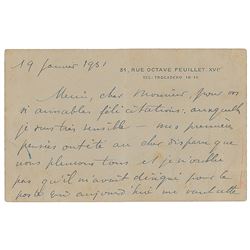 31, RUE OCTAVE FEUILLET. XVIᵉ
TEL: TROCADERO 18-11
19 Janvier 1931
Merci, cher Monsieur, pour vos
si aimables félicitations auxquelles
je suis très sensible — mes premières
pensées ont été au cher disparu que
nous pleurons tous et je n'oublie
pas qu'il m'avait désigné pour le
poste qui aujourd'hui me vaut cette